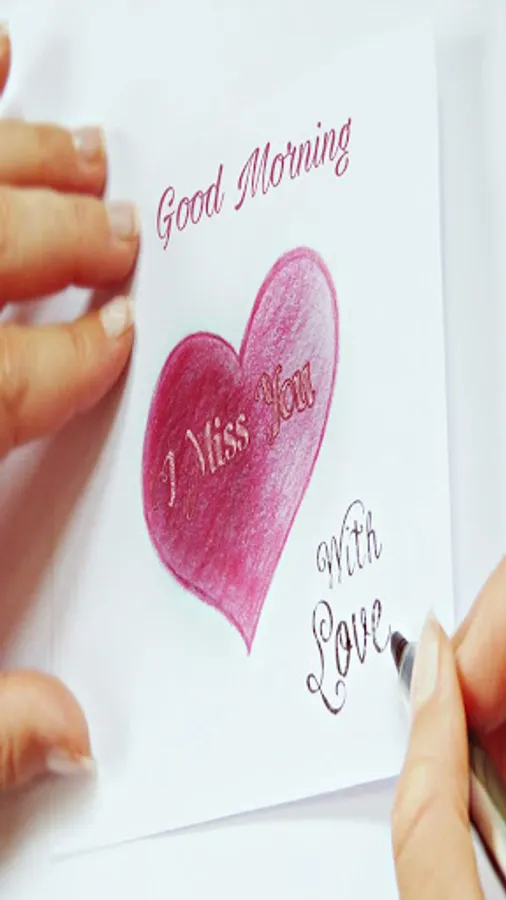 Good Morning
I Miss You
With
Love